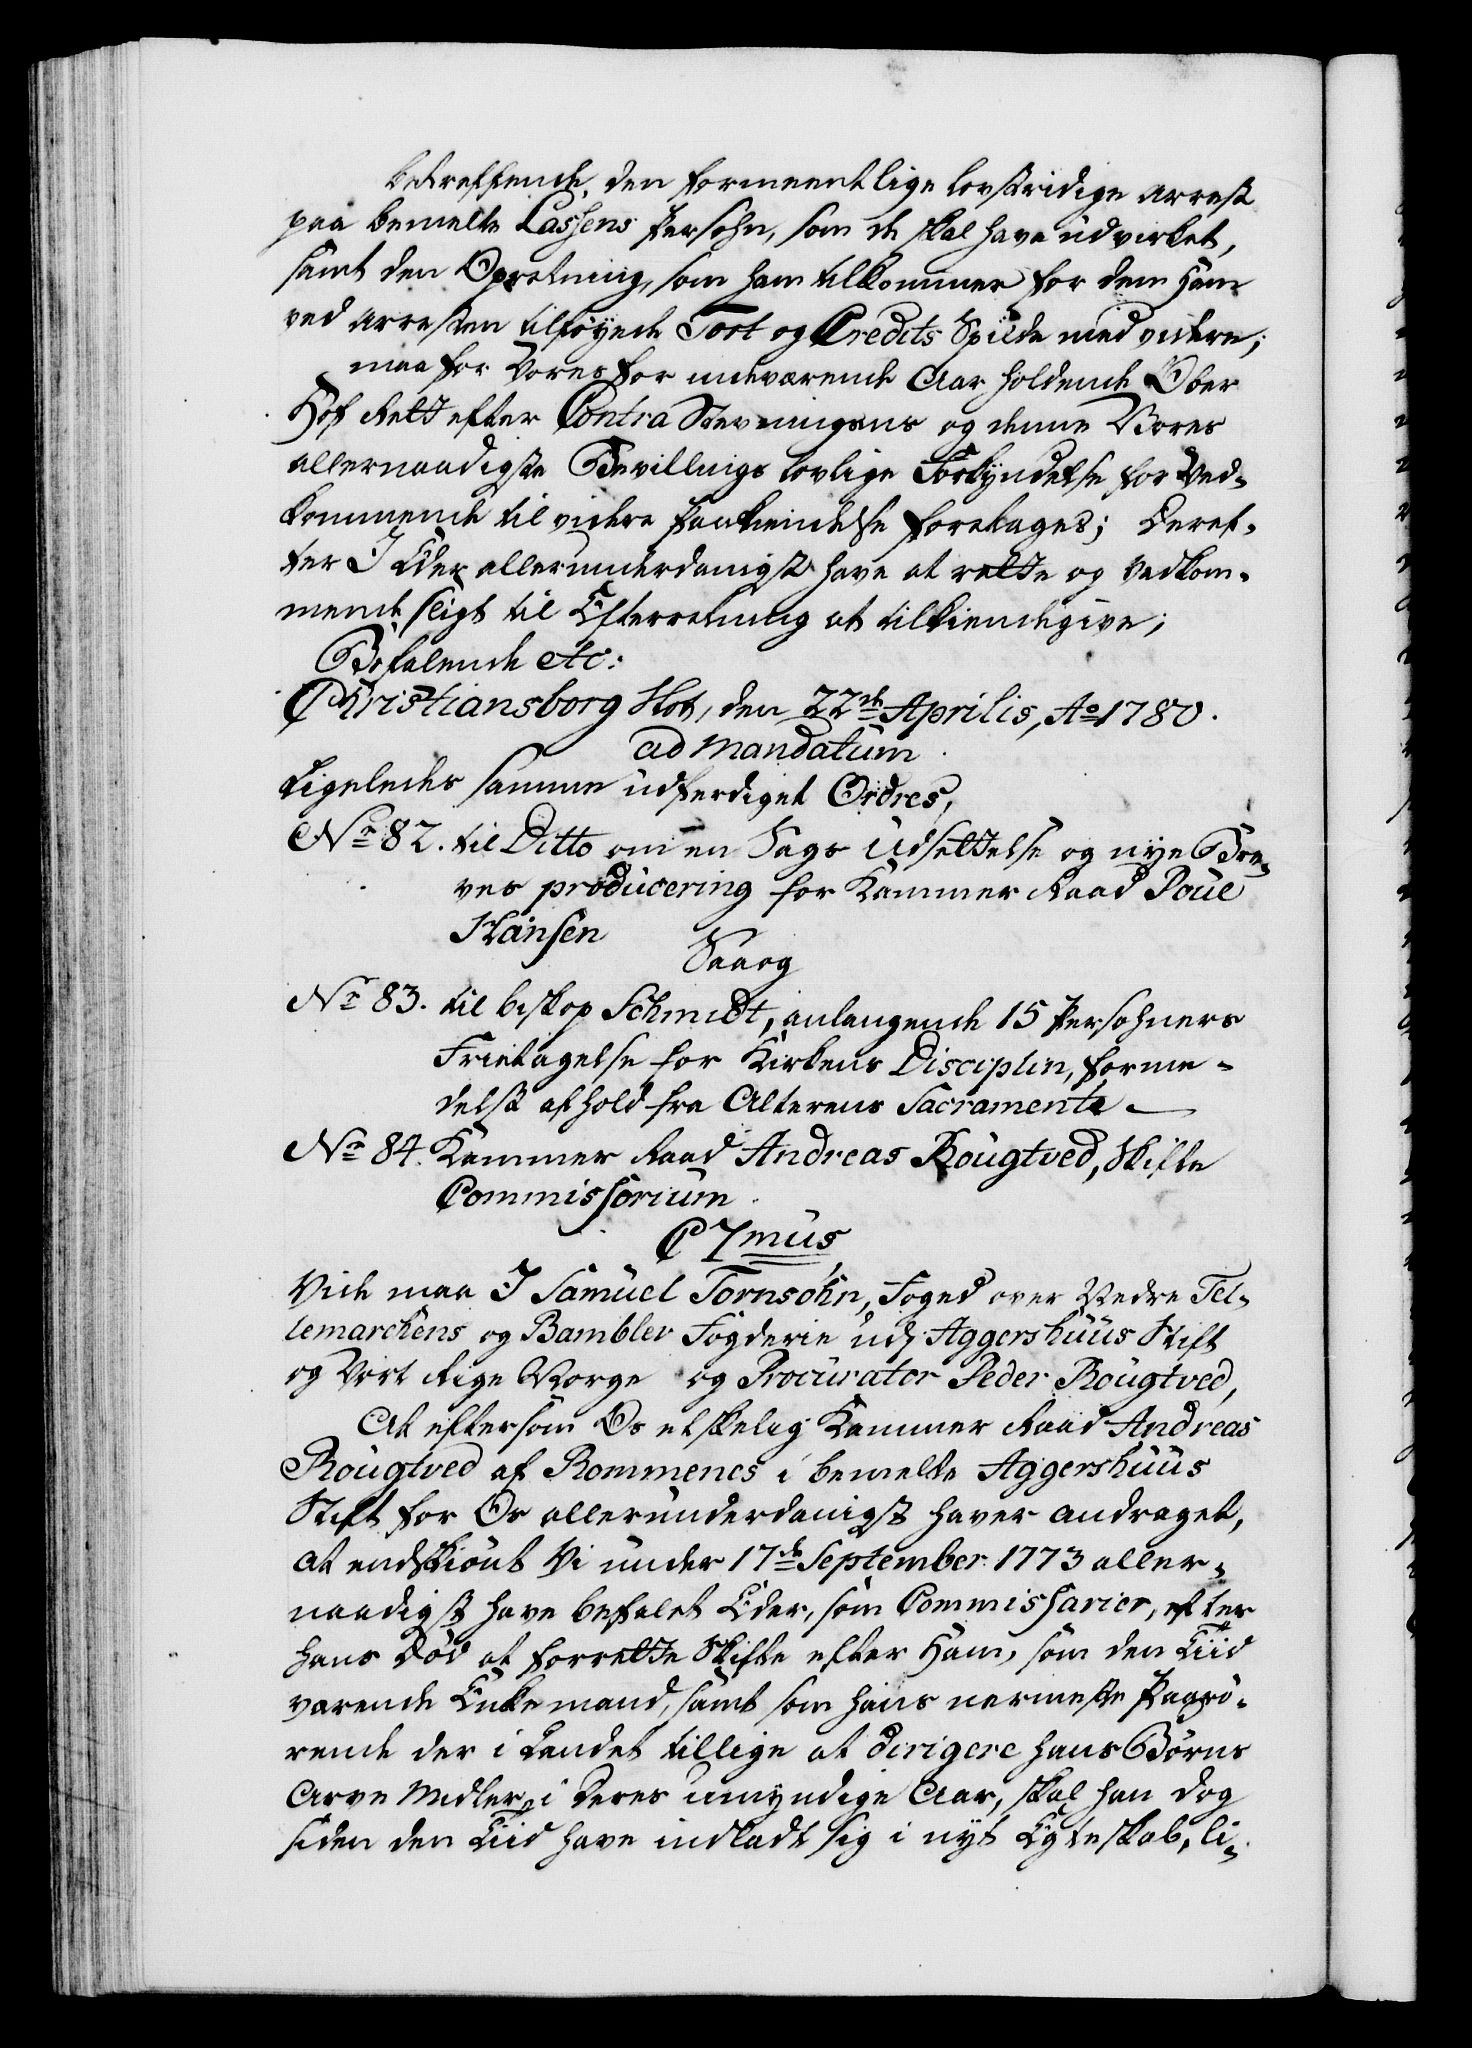 betreffende, den formeentlige lovstridige arrest
paa bemelte Lassens Persohn, som de skal have udvirket,
samt den Opretning, som ham tilkommer for dem Ham
ved arresten tilføyede Tort og Credits Spilde med videre;
maa for Vores for indeværende Aar holdende Ober
Hof Rett efter Contra Stevningens og denne Vores
allernaadigste Bevillings lovlige Forkyndelse for Ved-
kommende til videre Paakiendelse foretages; Deref-
ter I Eder allerunderdanigst have at rette og Vedkom-
mende sligt til Efterretning at tilkiendegive;
Befalende etc:
Christiansborg Slot, den 22de Aprilis, Ao 1780.
ad mandatum
Ligeledes samme udferdiget Ordres,
No 82. til Ditto om en Sags Udsettelse og nye Bre-
ves producering for Kammer Raad Poul
Hansen
Saaog
Nr 83. til biskop Schmidt, anlangende 15 Persohners
Frietagelse for Kirkens Disciplin, forme-
delst afhold fra Alterens Sacramente
Nr 84. Kammer Raad Andreas Rougtved, Skifte
Commissorium
C 7mus
Vide maa I Samuel Tornsohn, Foged over Nedre Tel-
lemarchens og Bambler Fogderie udj Aggershuus Stift
og Vort Rige Norge og Procurator Peder Rougtved,
At eftersom Os elskelig Kammer Raad Andreas
Rougtved af Rommenes i bemelte Aggershuus
Stift for Os allerunderdanigst haver andraget,
at endskiønt Vi under 17de September 1773 aller-
naadigst have befalet Eder, som Commissarier, efter
hans Død at forrette Skifte efter Ham, som den Tiid
værende Enkemand, samt som hans nermeste Paarø-
rende der i Landet tillige at dirigere hans Børns
Arve Midler i deres umyndige Aar, skal han dog
siden den Tiid have indladt sig i nyt Egteskab, li-